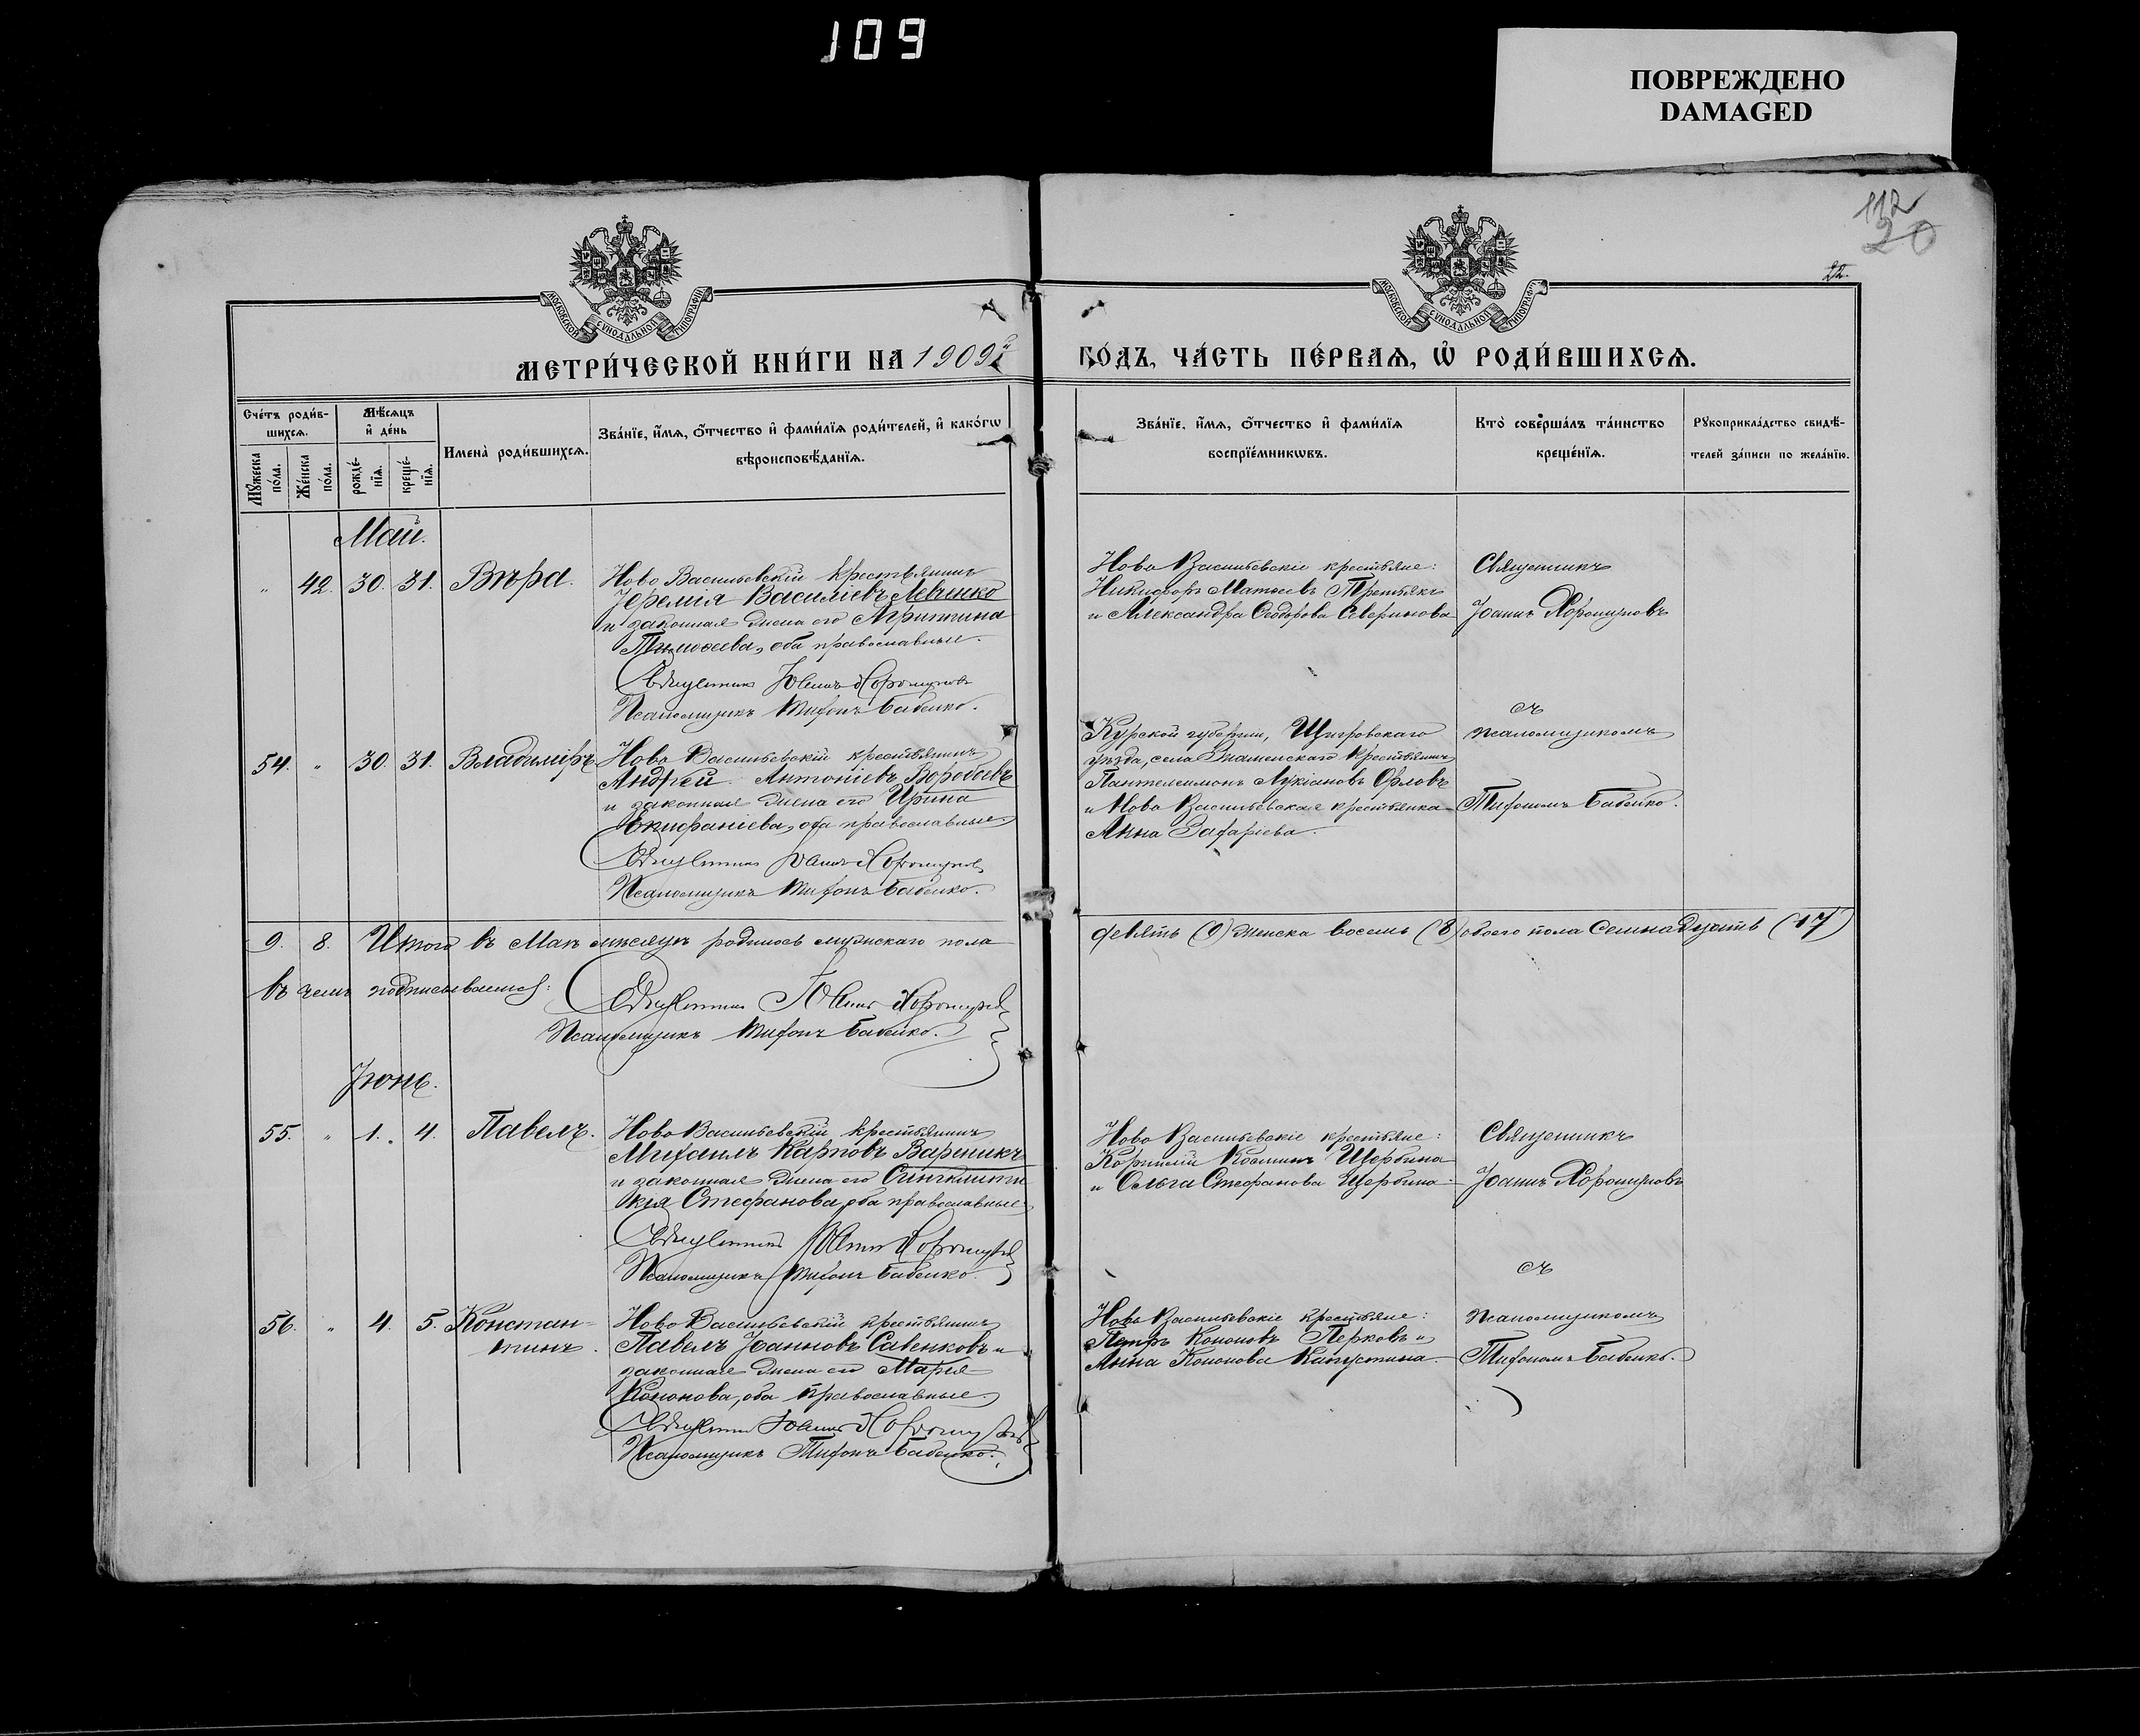 109
ПОВРЕЖДЕНО
DAMAGED
112
20
22.
МОСКОВСКОЙ СУНОДАЛЬНОЙ ТИПОГРАФІИ
МОСКОВСКОЙ СУНОДАЛЬНОЙ ТИПОГРАФІИ
МЕТРИ́ЧЕСКОЙ КНИ́ГИ НА 1909й
ГО́ДЪ, ЧА́СТЬ ПЕ́РВАѦ, Ѽ РОДИ́ВШИХСѦ.
Сче́тъ роди́в-
шихсѧ.
Мѣ́сѧцъ
и҆ де́нь
Мꙋ́жеска по́ла.
Же́нска по́ла.
рожде́-нїѧ.
креще́-нїѧ.
Имена̀ роди́вшихсѧ.
Зва́нїе, и҆́мѧ, ѻ҆́тчество и҆ фами́лїѧ роди́телей, и҆ како́гѡ
вѣроисповѣ́данїѧ.
Зва́нїе, и҆́мѧ, ѻ҆́тчество и҆ фами́лїѧ
воспрїе́мникѡвъ.
Кто̀ соверша́лъ та́инство
креще́нїѧ.
Рꙋкоприкла́дство свидѣ́-
телей за́писи по жела́нїю.
Май.
" 42. 30. 31. Вѣра.
Ново Васильевскій крестьянинъ
Іеремія Василіевъ Левшко
и законная жена его Агрипина
Тимоѳеева, оба православные.
Священникъ Іоаннъ Хорошуновъ
Псаломщикъ Тихонъ Бабенко.
Ново Васильевскіе крестьяне:
Никифоръ Матѳеевъ Третьякъ
и Александра Ѳеодорова Северинова
Священникъ
Іоаннъ Хорошуновъ
54. " 30. 31. Владиміръ
Ново Васильевскій крестьянинъ
Андрей Антоніевъ Воробьевъ
и законная жена его Ирина
Епифаніева, оба православные.
Священникъ Іоаннъ Хорошуновъ
Псаломщикъ Тихонъ Бабенко.
Курской губерніи, Щигровскаго
уѣзда, села Знаменскаго крестьянинъ
Пантелеимонъ Лукіановъ Орловъ
и Ново Васильевская крестьянка
Анна Захаріева.
съ
псаломщикомъ
Тихономъ Бабенко.
9. 8. Итого въ Маѣ мѣсяцѣ родилось мужскаго пола
девять (9) женска восемь (8) обоего пола семнадцать (17)
въ чемъ подписываемся:
Священникъ Іоаннъ Хорошуновъ
Псаломщикъ Тихонъ Бабенко.
Іюнь.
55. " 1. 4. Павелъ.
Ново Васильевскій крестьянинъ
Михаилъ Карповъ Вареникъ
и законная жена его Синклити
кія Стефанова, оба православные
Священникъ Іоаннъ Хорошуновъ
Псаломщикъ Тихонъ Бабенко.
Ново Васильевскіе крестьяне:
Корнилій Косминъ Щербина
и Ольга Стефанова Щербина.
Священникъ
Іоаннъ Хорошуновъ
56. " 4. 5. Констан-
тинъ.
Ново Васильевскій крестьянинъ
Павелъ Іоанновъ Савенковъ и
законная жена его Марія
Кононова, оба православные.
Священникъ Іоаннъ Хорошуновъ
Псаломщикъ Тихонъ Бабенко.
Ново Васильевскіе крестьяне:
Петръ Кононовъ Перковъ и
Анна Кононова Капустина.
съ
псаломщикомъ
Тихономъ Бабенко.